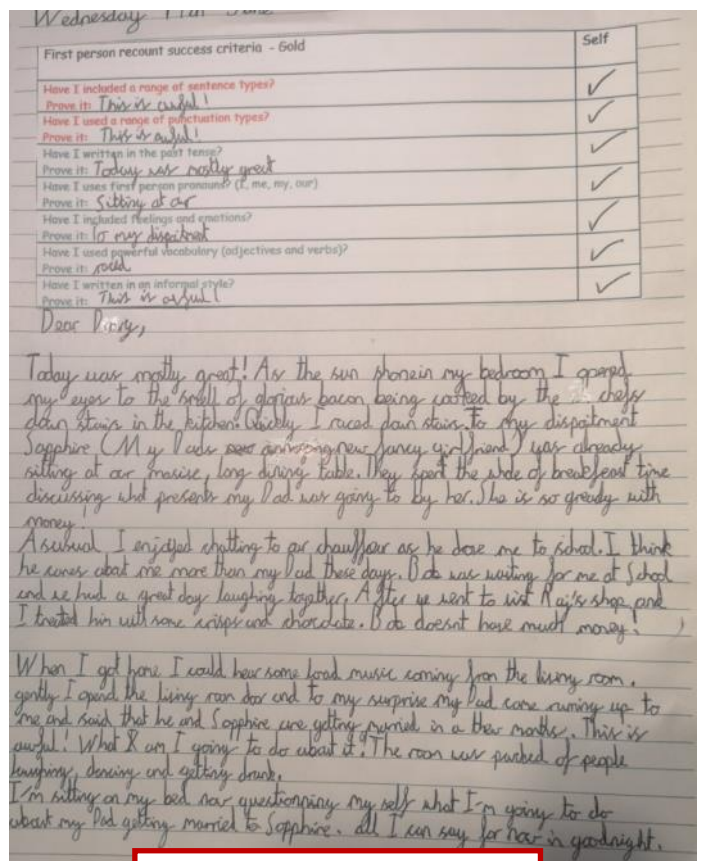 Wednesday 11th June
First person recount success criteria - Gold
Self
Have I included a range of sentence types?
Prove it: This is awful!
✓
Have I used a range of punctuation types?
Prove it: This is awful!
✓
Have I written in the past tense?
Prove it: Today was mostly great
✓
Have I uses first person pronouns? (I, me, my, our)
Prove it: Sitting at our
✓
Have I included feelings and emotions?
Prove it: To my dispitment
✓
Have I used powerful vocabulary (adjectives and verbs)?
Prove it: raced
✓
Have I written in an informal style?
Prove it: This is awful!
✓
Dear Diary,
Today was mostly great! As the sun shonein my bedroom I opened
my eyes to the smell of glorious bacon being cooked by the chefs
down stairs in the kitchen. Quickly I raced down stairs. To my dispoitment
Sapphire (My Dads annoying new fancy girlfriend) was already
sitting at our masise, long dining table. They spent the whole of breakfeast time
discussing what presents my Dad was going to by her. She is so greedy with
money!
Asusual I enjoyed chatting to our chauffeur as he drove me to school. I think
he cares about me more than my Dad these days. Bob was waiting for me at School
and we had a great day laughing together. After we went to visit Raj's shop and
I treated him with some crisps and chocolate. Bob doesnt have much money!
When I got home I could hear some loud music coming from the living room.
gently I opend the living room door and to my surprise my Dad came running up to
me and said that he and Sapphire are getting married in a thew months. This is
awful! What am I going to do about it? The room was packed of people
laughing, dancing and getting drunk.
I'm sitting on my bed now questionning my self what I'm going to do
about my Dad getting married to Sapphire. all I can say for now is goodnight.